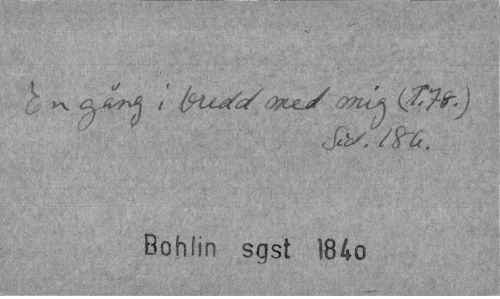 En gång i bredd med mig (T.78.)
Sid. 186.
Bohlin sgst 1840